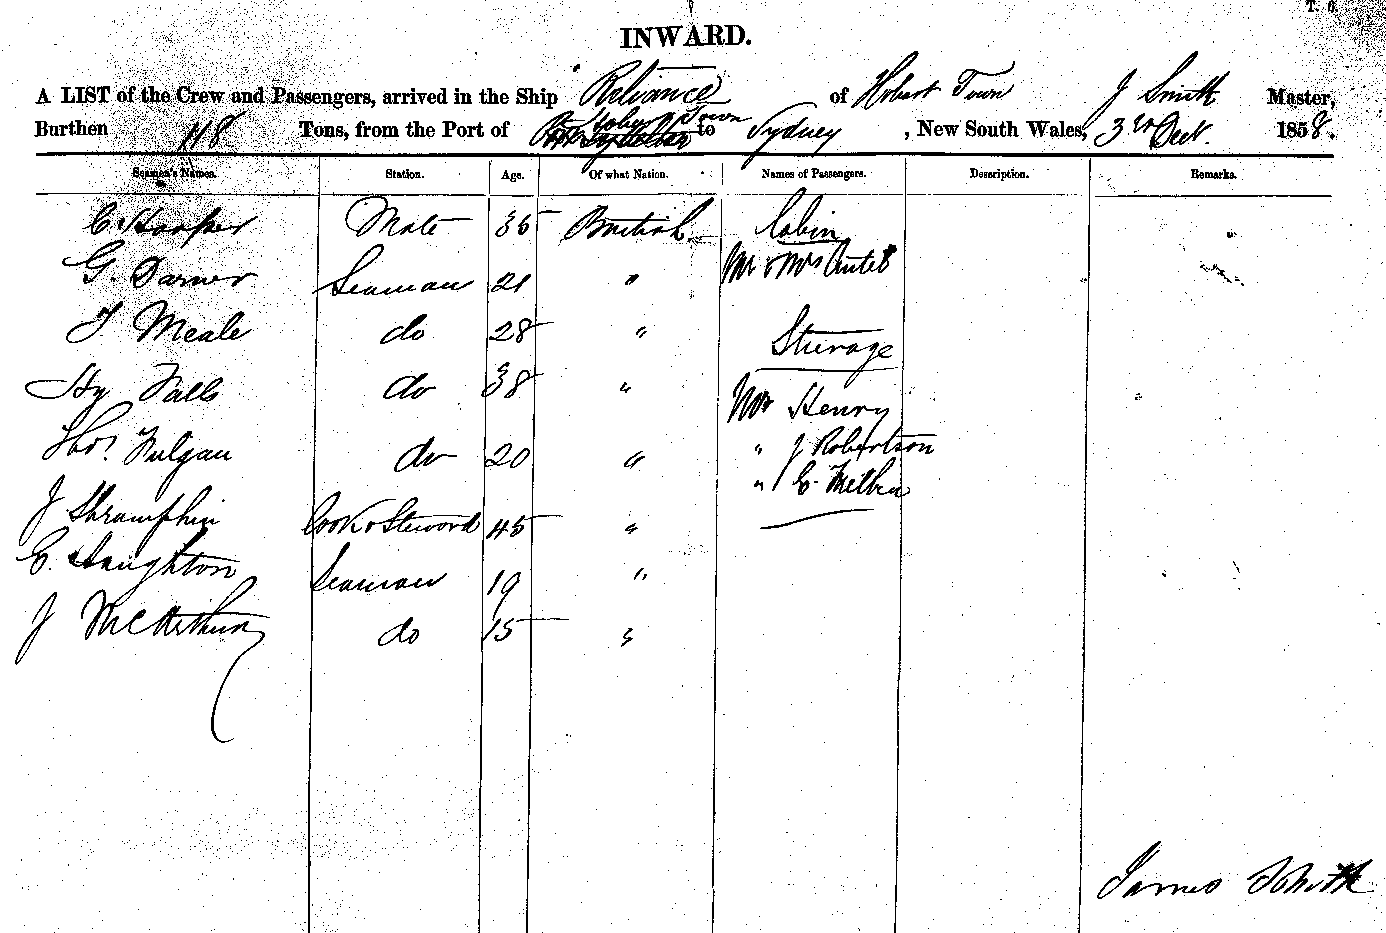 T. 6.
INWARD.
A LIST of the Crew and Passengers, arrived in the Ship Reliance of Hobart Town J Smith Master,
Burthen 118 Tons, from the Port of Hobart Town to Sydney, New South Wales, 3rd Dect. 1858.
Seamen's Names. Station. Age. Of what Nation. Names of Passengers. Description. Remarks.
C. Hooper Mate 35 British Cabin
G. Darner Seaman 21 " Mr & Mrs
J Meale do 28 " Steerage
Hy Falls do 38 " Mr Henry
" J Robertson
Thos. do 20 " " E.
J Cook & Steward 45 "
C. Haughton Seaman 19 "
J McArthur do 15 "
James Smith